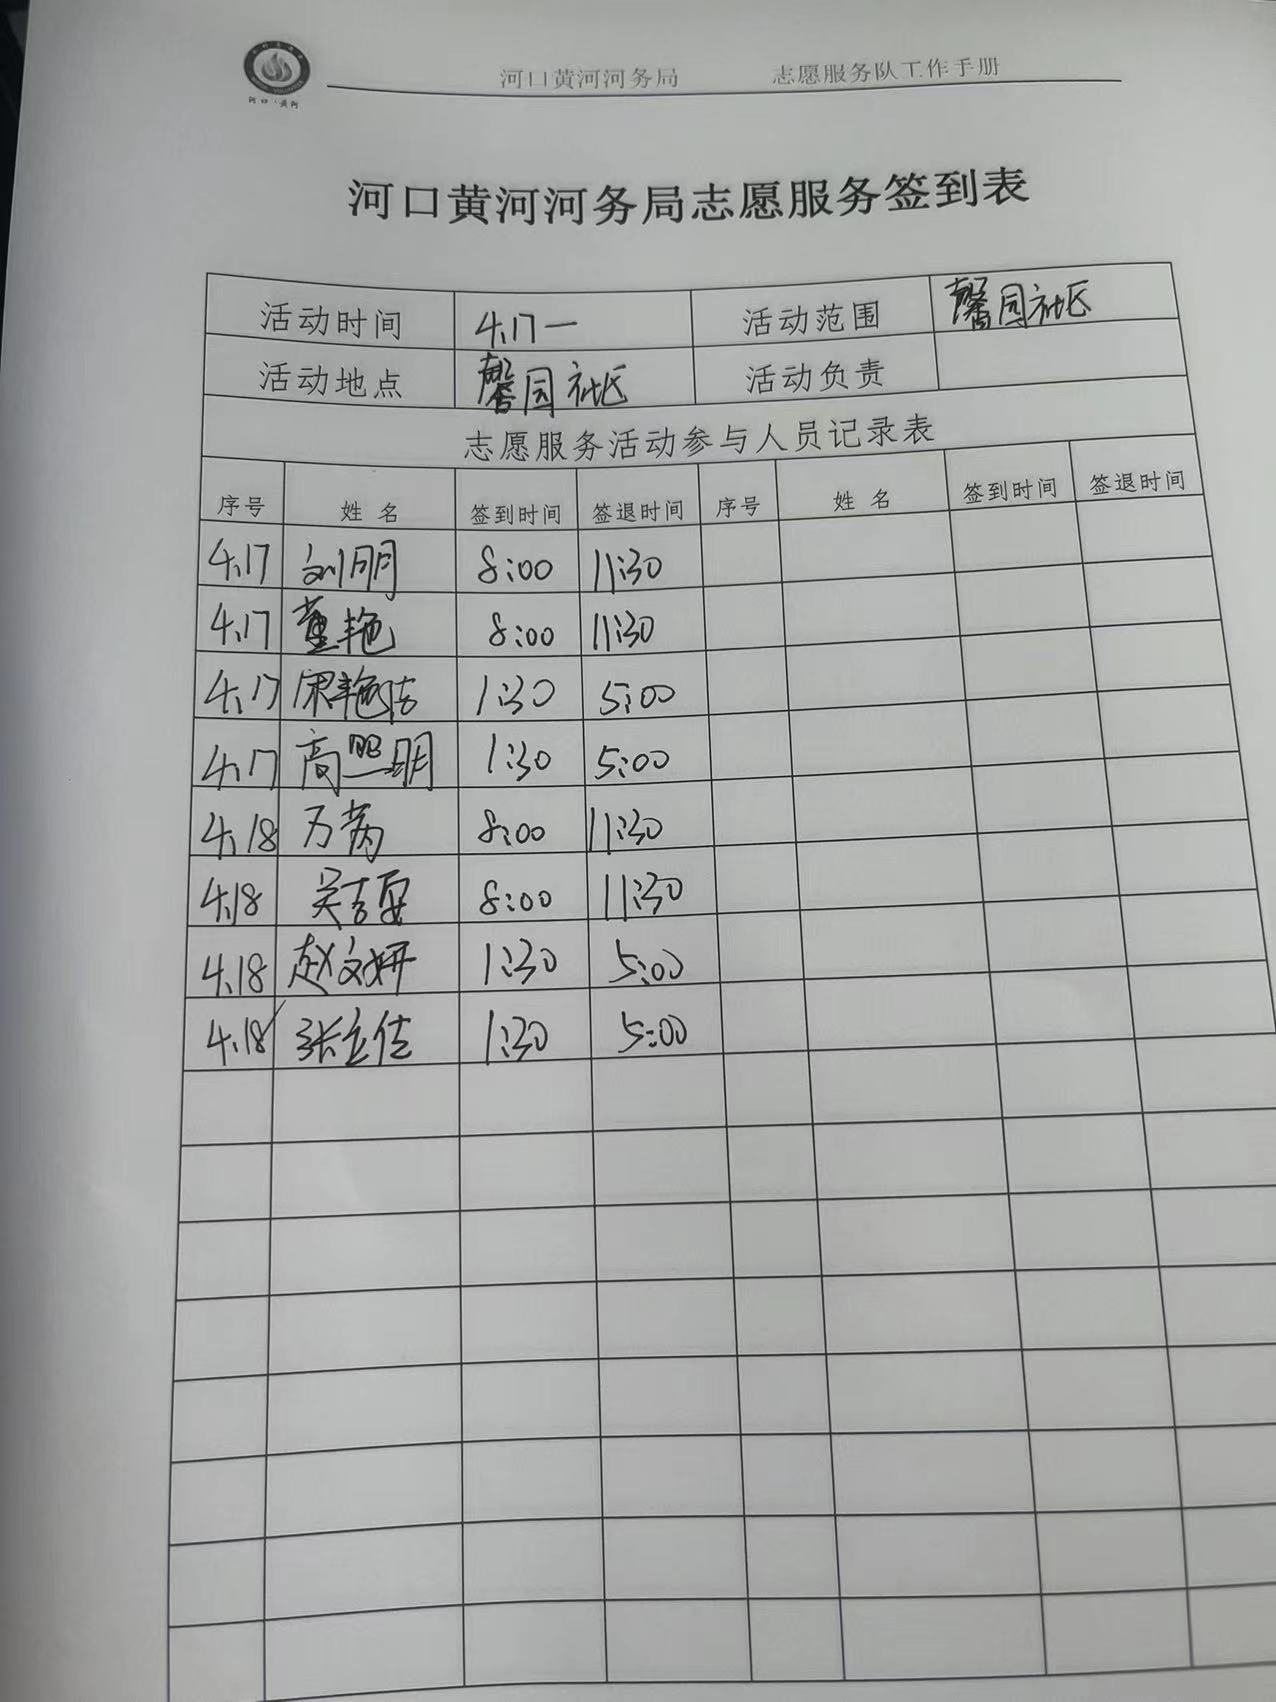 河口·黄河
河口黄河河务局 志愿服务队工作手册
河口黄河河务局志愿服务签到表
活动时间 4.17一 活动范围 馨园社区
活动地点 馨园社区 活动负责
志愿服务活动参与人员记录表
序号 姓名 签到时间 签退时间 序号 姓名 签到时间 签退时间
4.17 刘朋 8:00 11:30
4.17 董艳 8:00 11:30
4.17 宋艳洁 1:30 5:00
4.17 高照明 1:30 5:00
4.18 万芮 8:00 11:30
4.18 8:00 11:30
4.18 赵文妍 1:30 5:00
4.18 张立佳 1:30 5:00